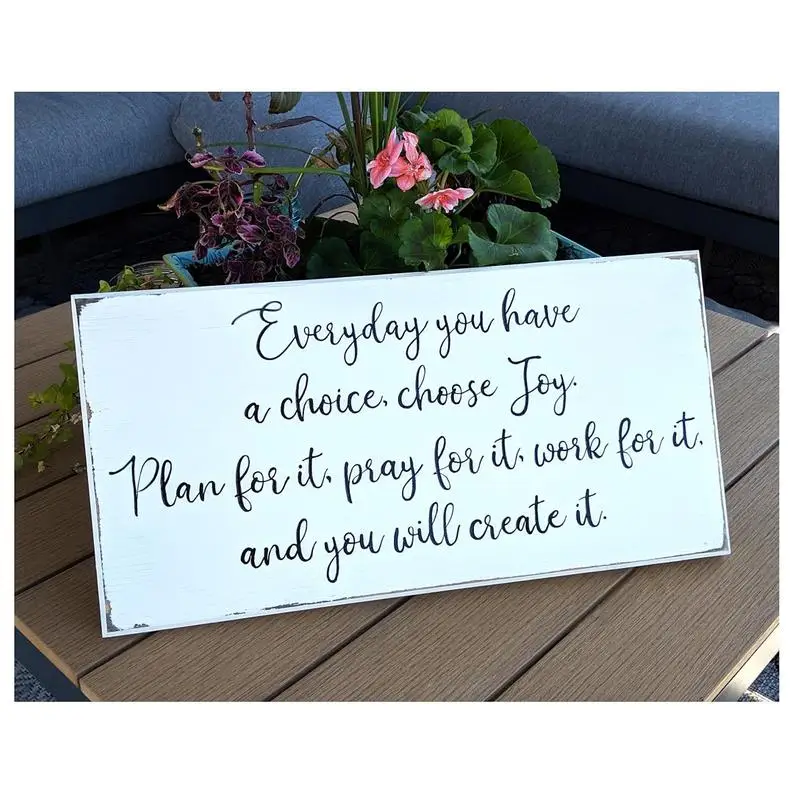 Everyday you have
a choice, choose Joy.
Plan for it, pray for it, work for it,
and you will create it.